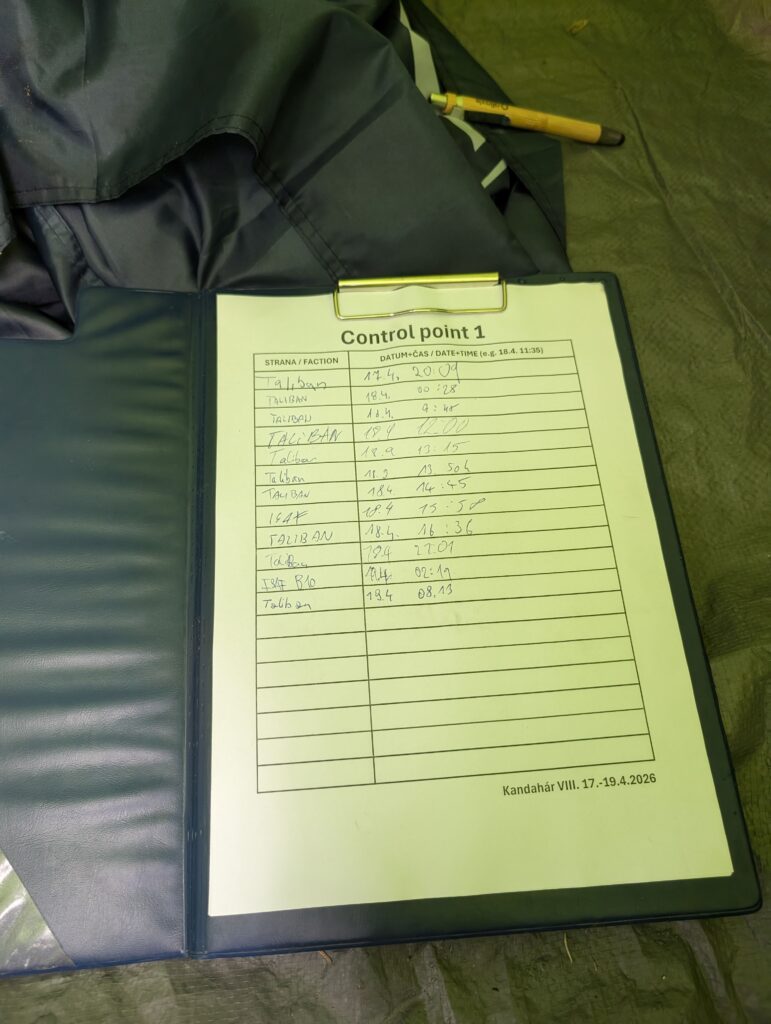 Control point 1
STRANA / FACTION DATUM+ČAS / DATE+TIME (e.g. 18.4. 11:35)
Taliban 17.4. 20:09
TALIBAN 18.4. 00:28
TALIBAN 18.4. 9:48
TALIBAN 18.4 12:00
Taliban 18.4 13:15
Taliban 13.50h
TALIBAN 18.4. 14:45
ISAF 18.4 15:58
TALIBAN 18.4. 16:36
Taliban 18.4
ISAF B10 02:19
Taliban 19.4 08.13
Kandahár VIII. 17.-19.4.2026